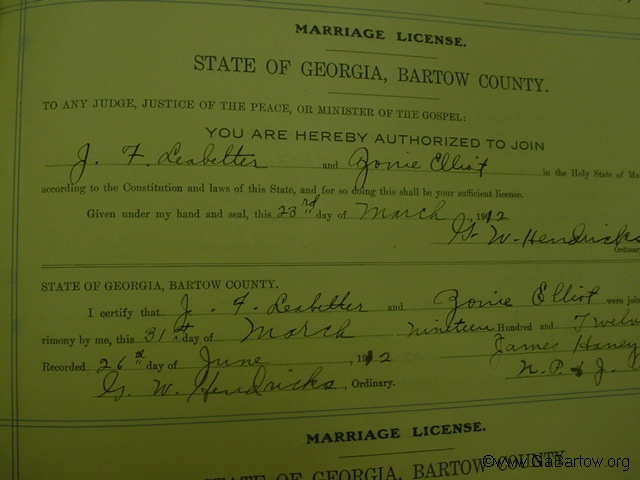 MARRIAGE LICENSE.
STATE OF GEORGIA, BARTOW COUNTY.
TO ANY JUDGE, JUSTICE OF THE PEACE, OR MINISTER OF THE GOSPEL:
YOU ARE HEREBY AUTHORIZED TO JOIN
J. F. Leabetter and Zonie Elliot in the Holy State of Ma
according to the Constitution and laws of this State, and for so doing this shall be your sufficient license.
Given under my hand and seal, this 23rd day of March, 1912
G. W. Hendricks
Ordinary
STATE OF GEORGIA, BARTOW COUNTY.
I certify that J. F. Leabetter and Zonie Elliot were join
rimony by me, this 31st day of March nineteen Hundred and Twelv
James Haney
Recorded 26th day of June, 1912
N. P. & J.
G. W. Hendricks, Ordinary.
MARRIAGE LICENSE.
STATE OF GEORGIA, BARTOW COUNTY
©www.GaBartow.org